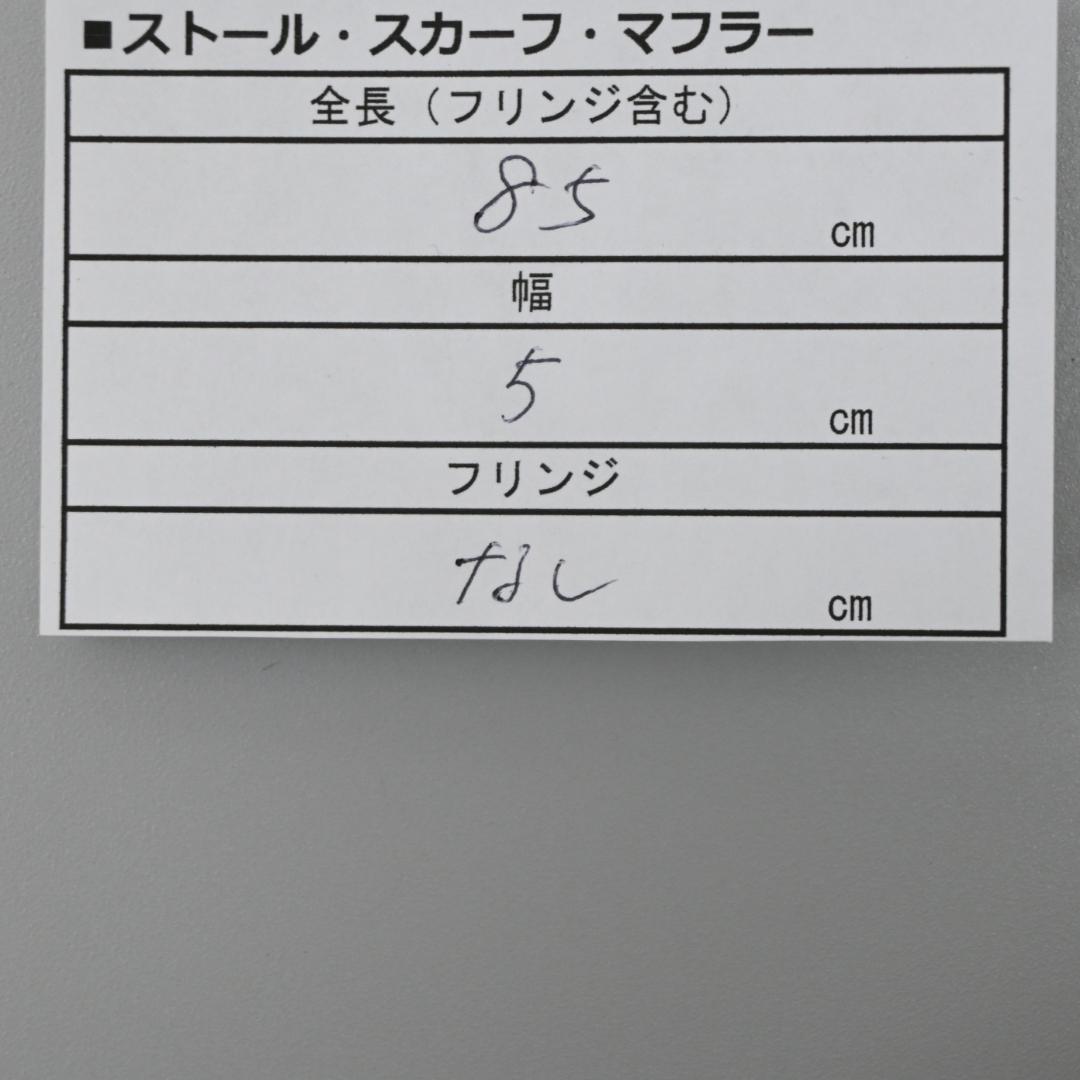 ■ストール・スカーフ・マフラー
全長（フリンジ含む）
85 cm
幅
5 cm
フリンジ
なし cm